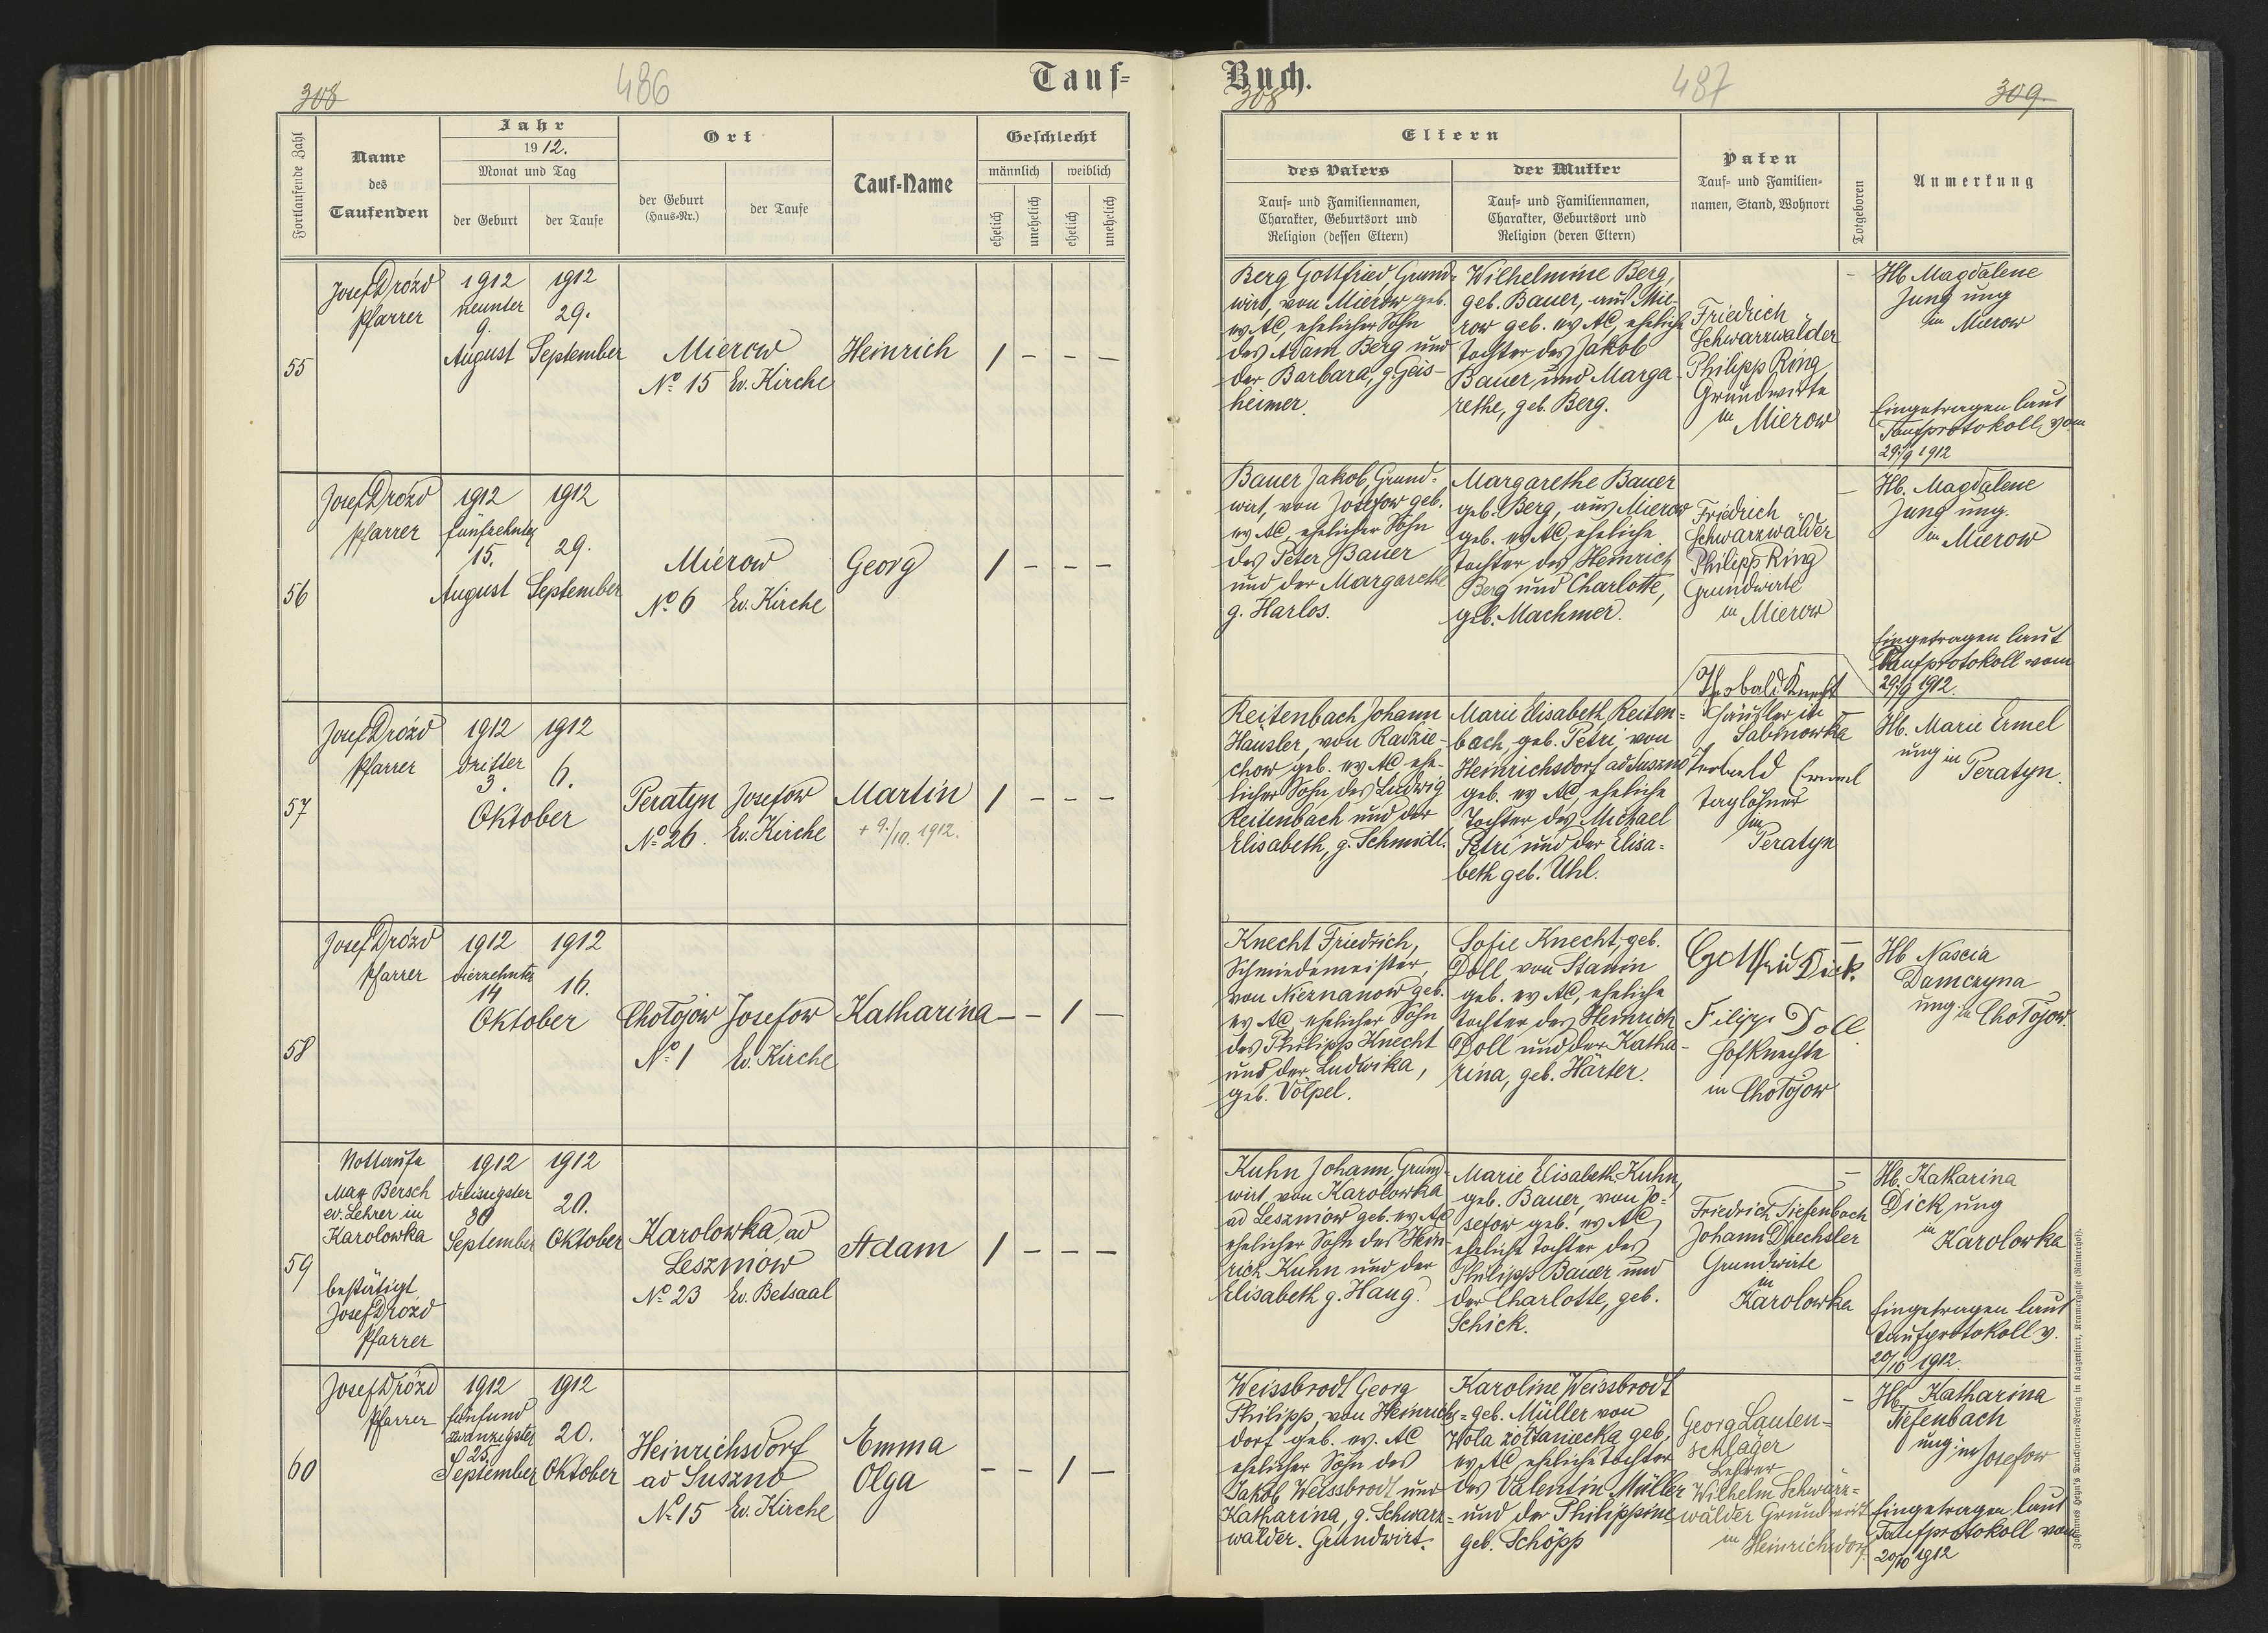 308
486
Tauf-
Buch.
308
487
309.
Fortlaufende Zahl
Name
des
Taufenden
Jahr
1912.
Monat und Tag
der Geburt
der Taufe
Ort
der Geburt
(Haus-Nr.)
der Taufe
Tauf-Name
Geschlecht
männlich
weiblich
ehelich
unehelich
ehelich
unehelich
Eltern
des Vaters
Tauf- und Familiennamen,
Charakter, Geburtsort und
Religion (dessen Eltern)
der Mutter
Tauf- und Familiennamen,
Charakter, Geburtsort und
Religion (deren Eltern)
Paten
Tauf- und Familien-
namen, Stand, Wohnort
Totgeboren
Anmerkung
55
Josef Drózd
Pfarrer
1912
neunter
9.
August
1912
29.
September
Mierow
No 15
Ev. Kirche
Heinrich
1 - - -
Berg Gottfried Grund-
wirt, von Mierow geb.
ev AC, ehelicher Sohn
des Adam Berg und
der Barbara, g. Geis-
heimer.
Wilhelmine Berg,
geb. Bauer, aus Mie-
row geb. ev AC, eheliche
Tochter des Jakob
Bauer und Marga-
rethe, geb. Berg.
Friedrich
Schwarzwälder
Philipp Ring
Grundwirte
in Mierow
-
Hb. Magdalene
Jung ung
in Mierow
Eingetragen laut
Taufprotokoll vom
29./9 1912
56
Josef Drózd
Pfarrer
1912
fünfzehnter
15.
August
1912
29.
September
Mierow
No 6
Ev. Kirche
Georg
1 - - -
Bauer Jakob, Grund-
wirt, von Josefow geb.
ev AC, ehelicher Sohn
des Peter Bauer
und der Margarethe
g. Harlos.
Margarethe Bauer
geb. Berg, aus Mierow
geb. ev AC, eheliche
Tochter des Heinrich
Berg und Charlotte,
geb. Machmer.
Friedrich
Schwarzwälder
Philipp Ring
Grundwirte
in Mierow
-
Hb. Magdalene
Jung ung.
in Mierow
Eingetragen laut
Taufprotokoll vom
29./9 1912.
57
Josef Drózd
Pfarrer
1912
dritter
3.
Oktober
1912
6.
Peratyn
No 26.
Josefow
Ev. Kirche
Martin
+ 9./10. 1912.
1 - - -
Reitenbach Johann
Häusler, von Radzie-
chow geb. ev AC ehe-
licher Sohn des Ludwig
Reitenbach und der
Elisabeth, g. Schmidt.
Marie Elisabeth Reiten-
bach, geb. Petri, von
Heinrichsdorf ad Suszno
geb. ev AC, eheliche
Tochter des Michael
Petri und der Elisa-
beth geb. Uhl.
Theobald Knecht
Häusler in
Sabinowka
Teobald Ermel
Taglöhner
in
Peratyn
-
Hb. Marie Ermel
ung in
Peratyn.
58
Josef Drózd
Pfarrer
1912
vierzehnter
14
Oktober
1912
16.
Chołojow
No 1
Josefow
Ev. Kirche
Katharina
- - 1 -
Knecht Friedrich,
Schmiedemeister,
von Nieznanow geb.
ev AC, ehelicher Sohn
des Philipp Knecht
und der Ludwika,
geb. Völpel.
Sofie Knecht, geb.
Doll von Stanin
geb. ev AC, eheliche
Tochter des Heinrich
Doll und der Katha-
rina, geb. Härter.
Gottfrid Dick.
Filipp Doll
Hofknechte
in Chołojow
-
Hb Nascia
Damczyna
ung. in Chołojow.
59
Nottaufe
Max Bersch
ev. Lehrer in
Karolowka
bestätigt
Josef Drózd
Pfarrer
1912
dreissigster
30
September
1912
20.
Oktober
Karolowka, ad
Leszniow
No 23
Ev. Betsaal
Adam
1 - - -
Kuhn Johann, Grund-
wirt von Karolowka
ad Leszniow geb. ev AC
ehelicher Sohn des Hein-
rich Kuhn und der
Elisabeth g. Haug.
Marie Elisabeth Kuhn,
geb. Bauer, von Jo-
sefow geb. ev AC,
eheliche Tochter des
Philipp Bauer und
der Charlotte, geb.
Schick.
Friedrich Tiefenbach
Johann Drechsler
Grundwirte
in
Karolowka
-
Hb. Katharina
Dick ung
in Karolowka
Eingetragen laut
Taufprotokoll v.
20/10 1912.
60
Josef Drózd
Pfarrer
1912
fünfund
zwanzigster
25.
September
1912
20.
Oktober
Heinrichsdorf
ad Suszno
No 15
Ev. Kirche
Emma
Olga
- - 1 -
Weissbrodt Georg
Philipp, von Heinrichs-
dorf geb. ev. AC
ehelicher Sohn des
Jakob Weissbrodt und
Katharina, g. Schwarz-
wälder. Grundwirt.
Karoline Weissbrodt
geb. Müller von
Wola żółtaniecka geb.
ev AC eheliche Tochter
des Valentin Müller
und der Philippine
geb. Schöpp
Georg Lauten-
schläger
Lehrer
Wilhelm Schwarz-
wälder Grundwirt
in Heinrichsdorf
-
Hb. Katharina
Tiefenbach
ung. in Josefow
Eingetragen laut
Taufprotokoll vom
20/10 1912
Johannes Heyn's Drucksorten-Verlag in Klagenfurt, Kramergasse (Rainerhof).